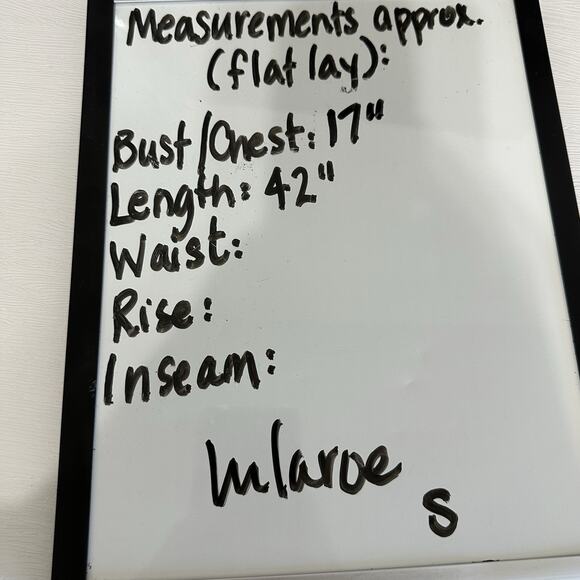 Measurements approx.
(flat lay):
Bust/Chest: 17"
Length: 42"
Waist:
Rise:
Inseam:
lularoe
S